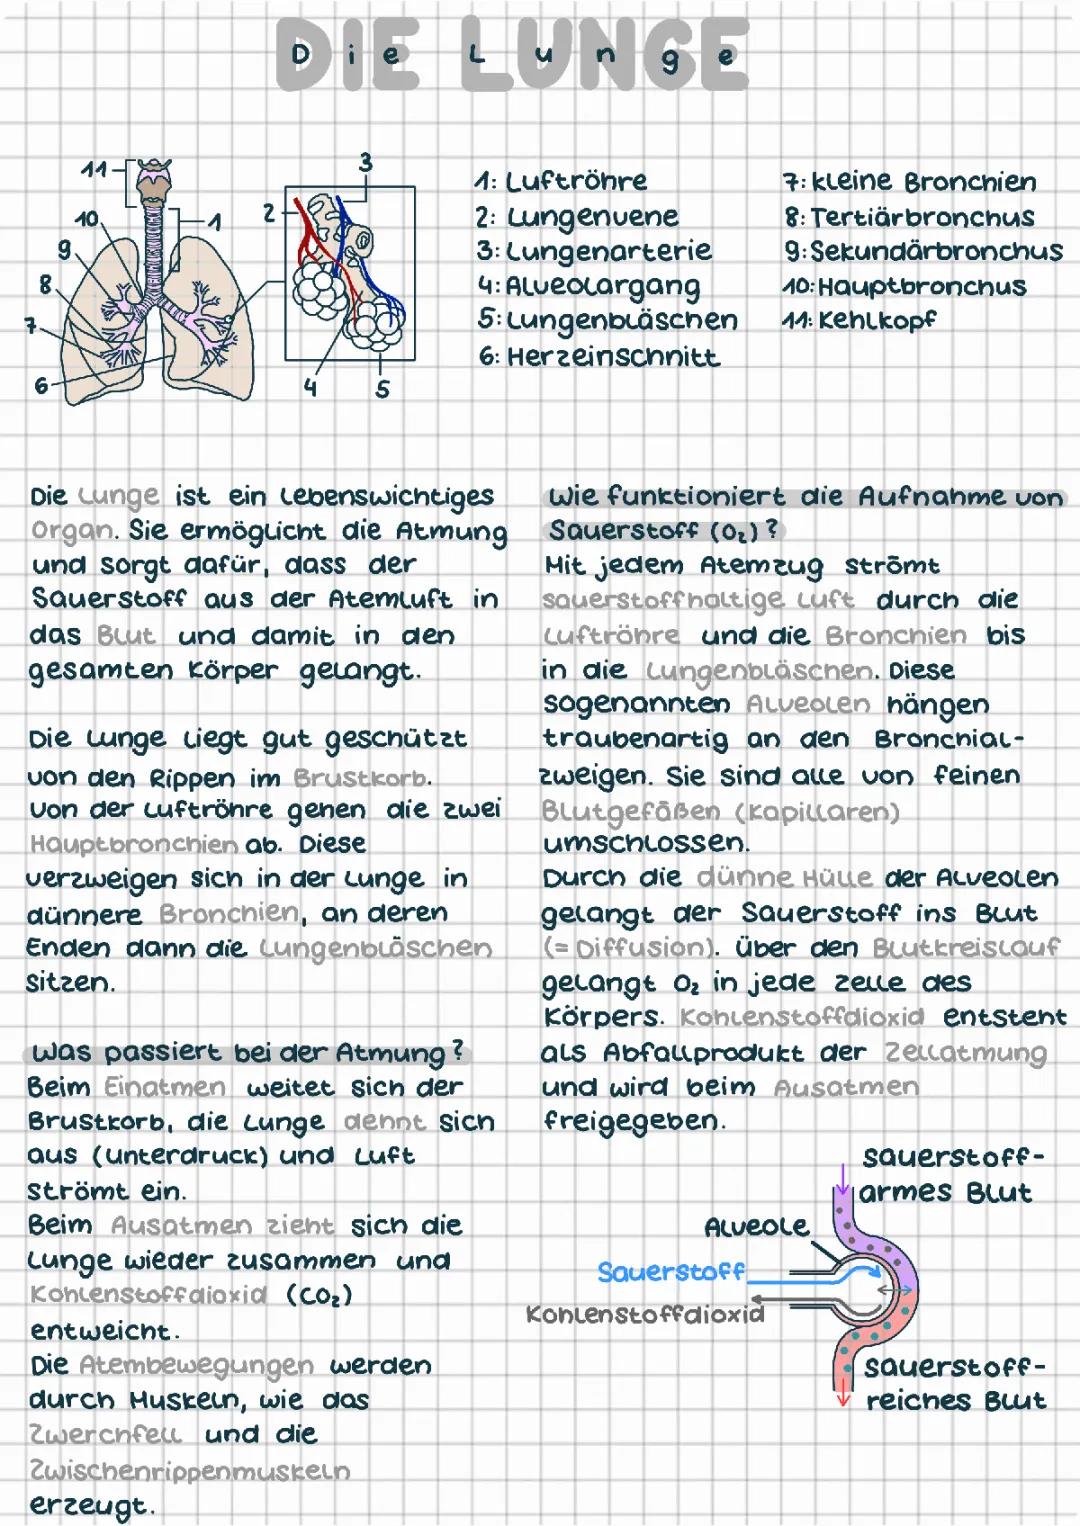 DIE LUNGE
Die Lunge
11
10
9
8
7
6
1
2
3
4
5
1: Luftröhre
2: Lungenvene
3: Lungenarterie
4: Alveolargang
5: Lungenbläschen
6: Herzeinschnitt
7: kleine Bronchien
8: Tertiärbronchus
9: Sekundärbronchus
10: Hauptbronchus
11: Kehlkopf
Die Lunge ist ein lebenswichtiges
Organ. Sie ermöglicht die Atmung
und sorgt dafür, dass der
Sauerstoff aus der Atemluft in
das Blut und damit in den
gesamten Körper gelangt.
Die Lunge liegt gut geschützt
von den Rippen im Brustkorb.
Von der Luftröhre gehen die zwei
Hauptbronchien ab. Diese
verzweigen sich in der Lunge in
dünnere Bronchien, an deren
Enden dann die Lungenbläschen
sitzen.
Was passiert bei der Atmung?
Beim Einatmen weitet sich der
Brustkorb, die Lunge dehnt sich
aus (Unterdruck) und Luft
strömt ein.
Beim Ausatmen zieht sich die
Lunge wieder zusammen und
Kohlenstoffdioxid (CO₂)
entweicht.
Die Atembewegungen werden
durch Muskeln, wie das
Zwerchfell und die
Zwischenrippenmuskeln
erzeugt.
Wie funktioniert die Aufnahme von
Sauerstoff (O₂)?
Mit jedem Atemzug strömt
sauerstoffhaltige Luft durch die
Luftröhre und die Bronchien bis
in die Lungenbläschen. Diese
sogenannten Alveolen hängen
traubenartig an den Bronchial-
zweigen. Sie sind alle von feinen
Blutgefäßen (Kapillaren)
umschlossen.
Durch die dünne Hülle der Alveolen
gelangt der Sauerstoff ins Blut
(= Diffusion). Über den Blutkreislauf
gelangt O₂ in jede Zelle des
Körpers. Kohlenstoffdioxid entsteht
als Abfallprodukt der Zellatmung
und wird beim Ausatmen
freigegeben.
sauerstoff-
armes Blut
Alveole
Sauerstoff
Kohlenstoffdioxid
sauerstoff-
reiches Blut